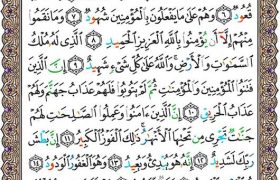 قُعُودٌ ٦ وَهُمْ عَلَىٰ مَا يَفْعَلُونَ بِالْمُؤْمِنِينَ شُهُودٌ ٧ وَمَا نَقَمُوا
مِنْهُمْ إِلَّا أَن يُؤْمِنُوا بِاللَّهِ الْعَزِيزِ الْحَمِيدِ ٨ الَّذِي لَهُ مُلْكُ
السَّمَاوَاتِ وَالْأَرْضِ وَاللَّهُ عَلَىٰ كُلِّ شَيْءٍ شَهِيدٌ ٩ إِنَّ الَّذِينَ
فَتَنُوا الْمُؤْمِنِينَ وَالْمُؤْمِنَاتِ ثُمَّ لَمْ يَتُوبُوا فَلَهُمْ عَذَابُ جَهَنَّمَ وَلَهُمْ
عَذَابُ الْحَرِيقِ ١٠ إِنَّ الَّذِينَ آمَنُوا وَعَمِلُوا الصَّالِحَاتِ لَهُمْ
جَنَّاتٌ تَجْرِي مِن تَحْتِهَا الْأَنْهَارُ ذَٰلِكَ الْفَوْزُ الْكَبِيرُ ١١ إِنَّ بَطْشَ
رَبِّكَ لَشَدِيدٌ ١٢ إِنَّهُ هُوَ يُبْدِئُ وَيُعِيدُ ١٣ وَهُوَ الْغَفُورُ الْوَدُودُ ١٤